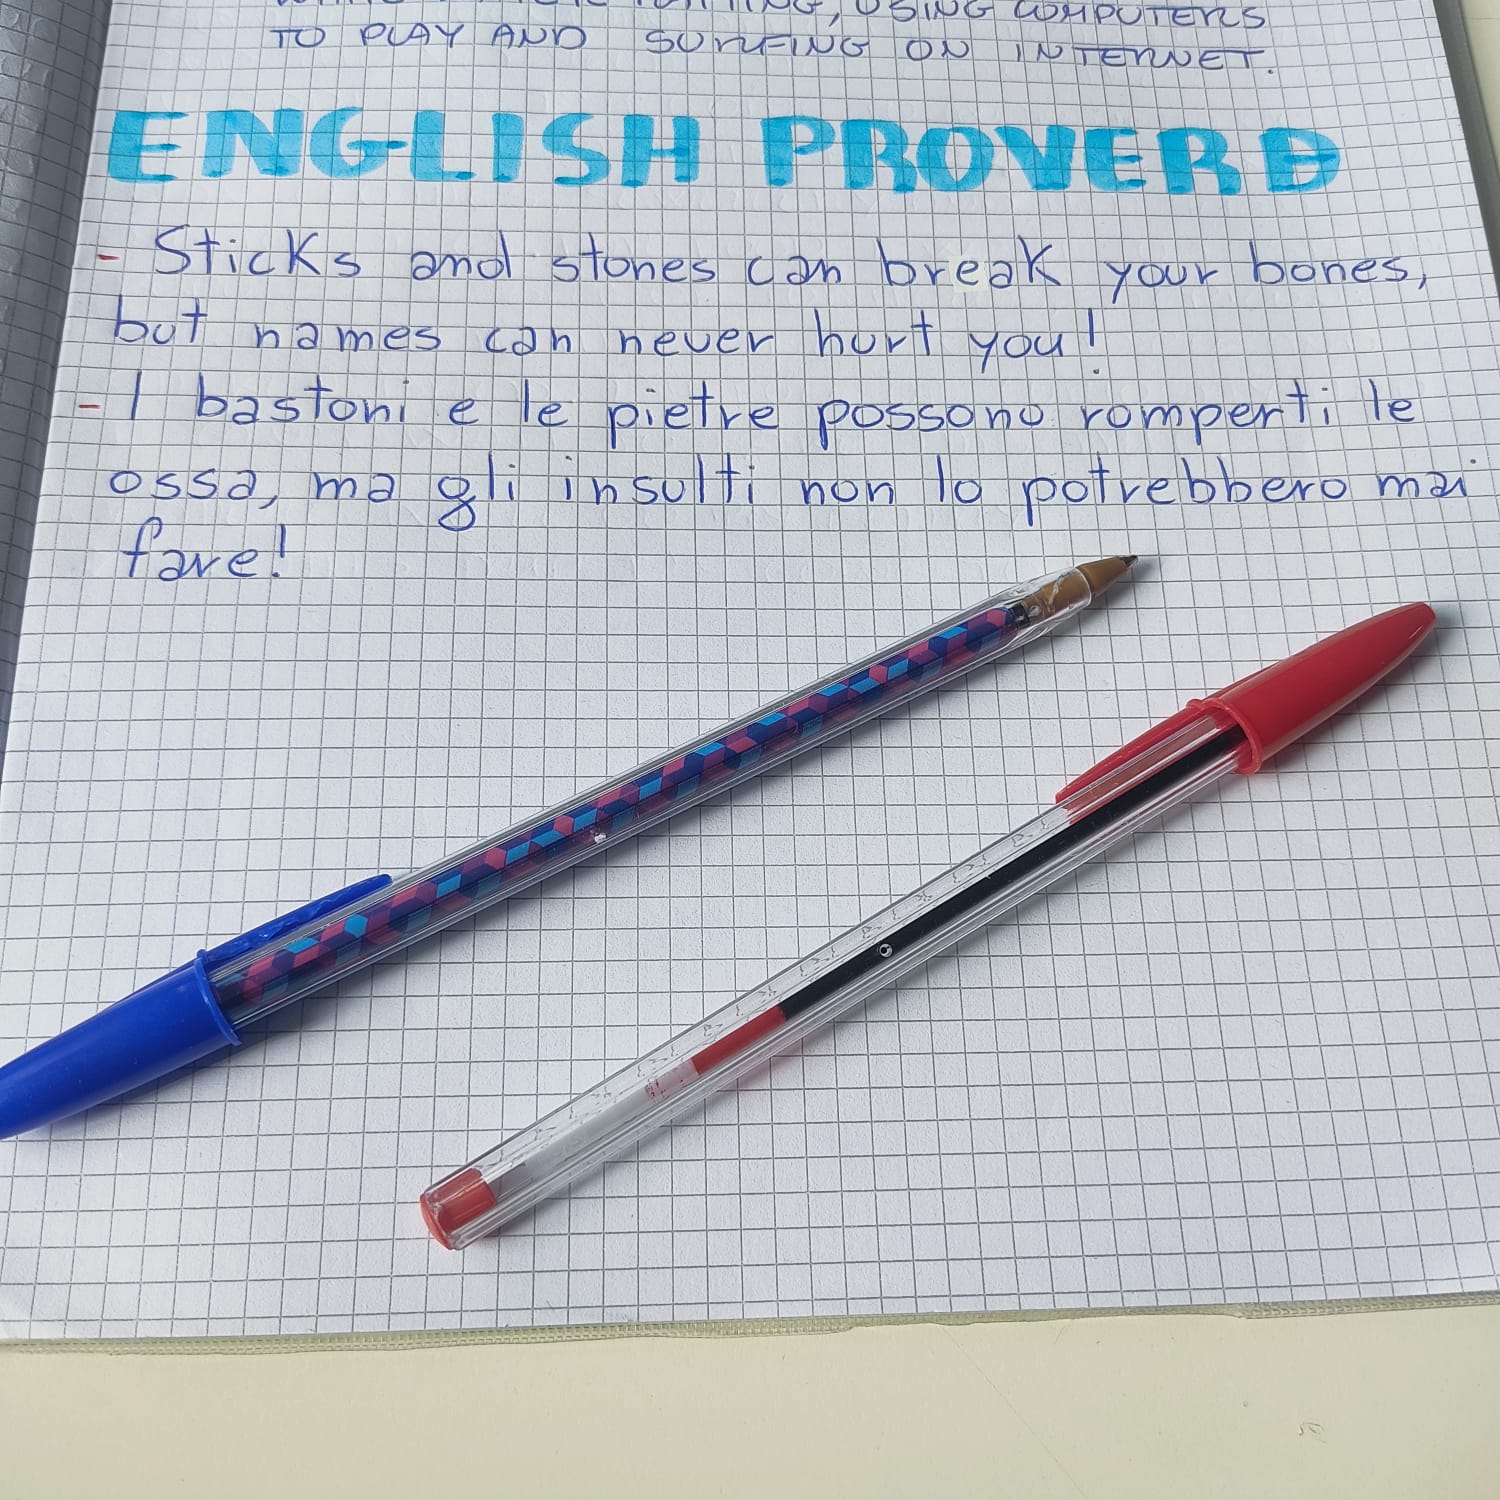 USING COMPUTERS
TO PLAY AND SURFING ON INTERNET.
ENGLISH PROVERB
- Sticks and stones can break your bones,
but names can never hurt you!
- I bastoni e le pietre possono romperti le
ossa, ma gli insulti non lo potrebbero mai
fare!